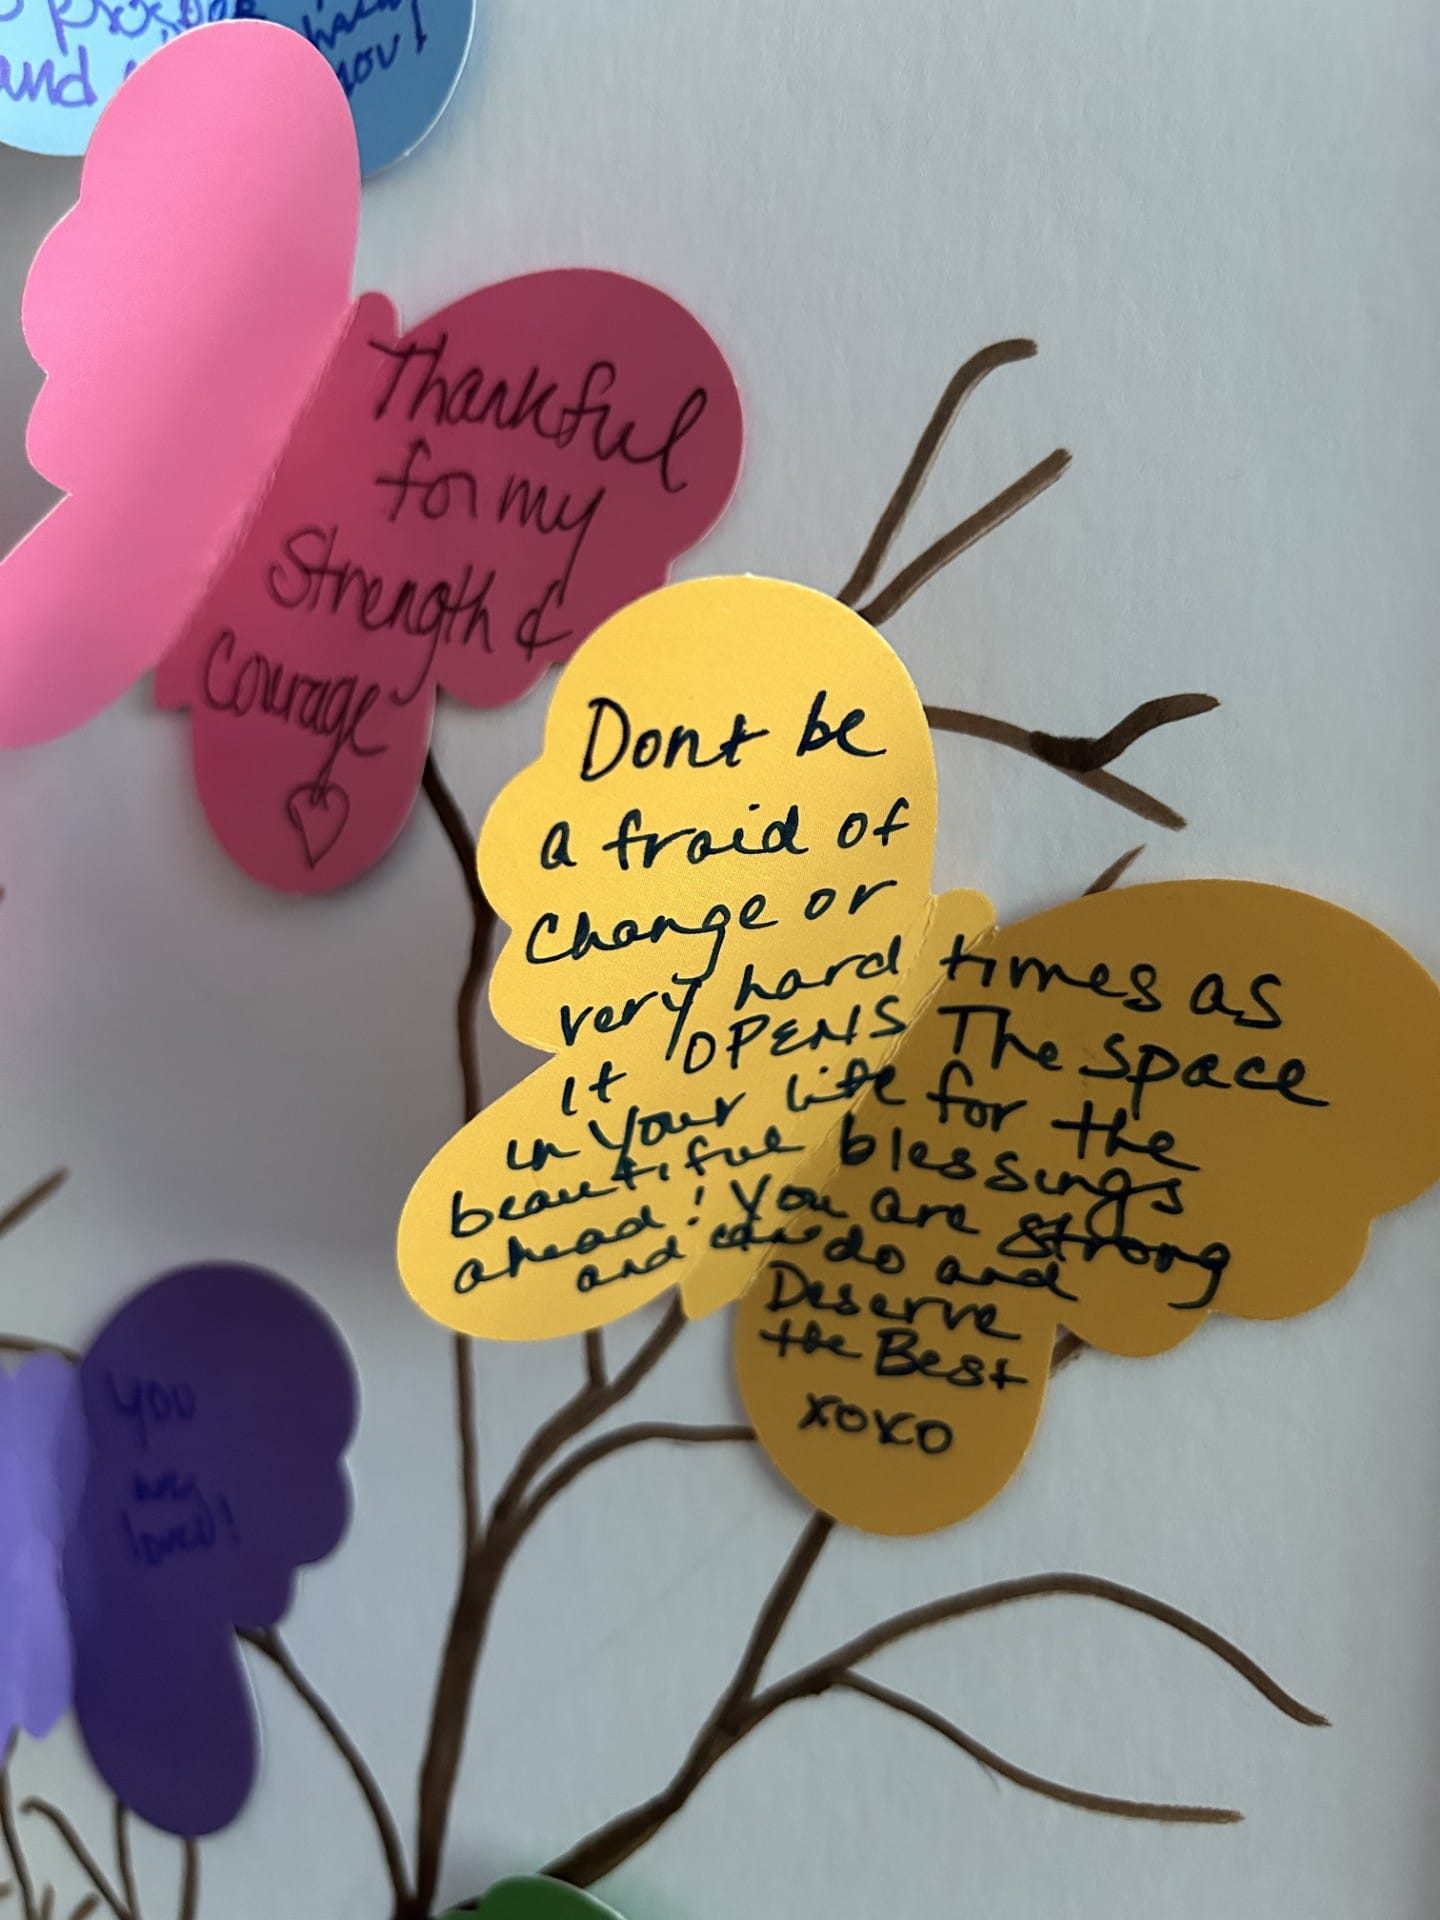 and
Thankful
for my
Strength &
Courage
Dont be
a fraid of
Change or
very hard times as
it OPENS The space
in your life for the
beautiful blessings
ahead! You are strong
and can do and
Deserve
the Best
xoxo
You
are
loved!